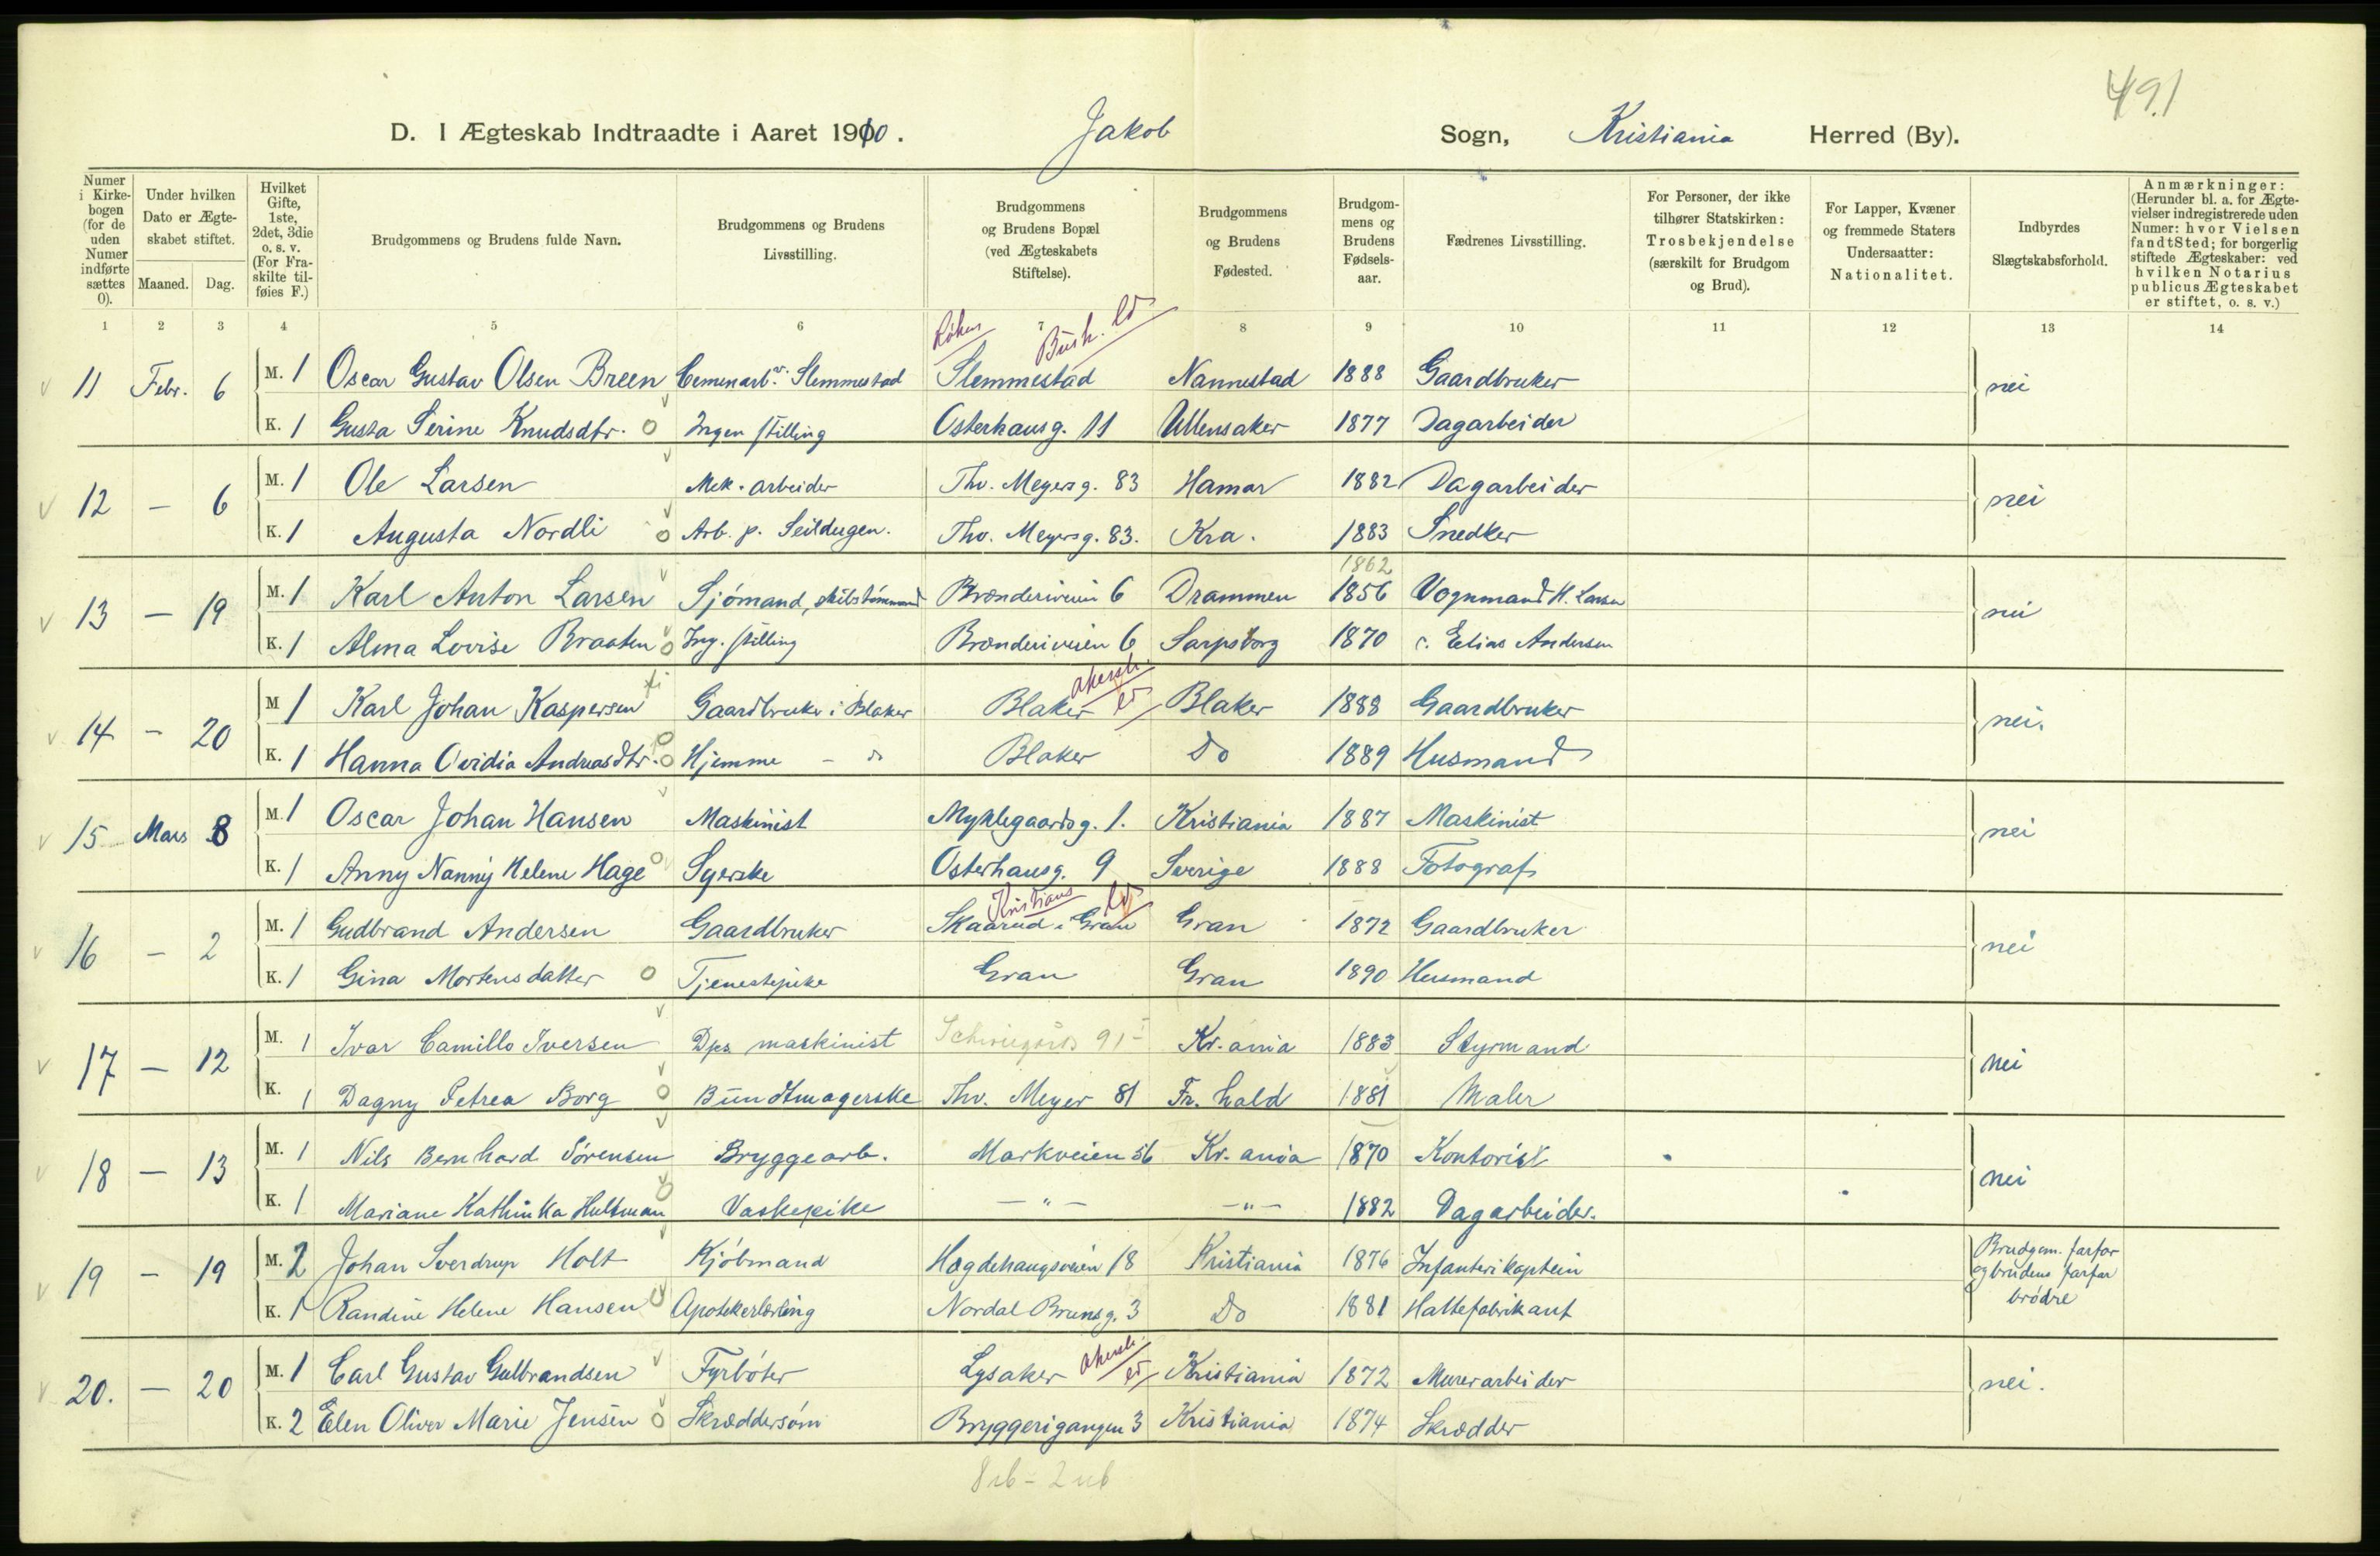 491
D. I Ægteskab Indtraadte i Aaret 1910. Jakob Sogn, Kristiania Herred (By).
Numer i Kirkebogen (for de uden Numer indførte sættes 0).
Under hvilken Dato er Ægteskabet stiftet.
Maaned. Dag.
Hvilket Gifte, 1ste, 2det, 3die o. s. v. (For Fraskilte tilføies F.)
Brudgommens og Brudens fulde Navn.
Brudgommens og Brudens Livsstilling.
Brudgommens og Brudens Bopæl (ved Ægteskabets Stiftelse).
Brudgommens og Brudens Fødested.
Brudgommens og Brudens Fødselsaar.
Fædrenes Livsstilling.
For Personer, der ikke tilhører Statskirken: Trosbekjendelse (særskilt for Brudgom og Brud).
For Lapper, Kvæner og fremmede Staters Undersaatter: Nationalitet.
Indbyrdes Slægtskabsforhold.
Anmærkninger: (Herunder bl. a. for Ægtevielser indregistrerede uden Numer: hvor Vielsen fandt Sted; for borgerlig stiftede Ægteskaber: ved hvilken Notarius publicus Ægteskabet er stiftet, o. s. v.)
1 2 3 4 5 6 7 8 9 10 11 12 13 14
Røken Busk. ld
11 Febr. 6 M. 1 Oscar Gustav Olsen Breen Cemenarb. v. Slemmestad Slemmestad Nannestad 1888 Gaardbruker nei
K. 1 Gusta Serine Knudsdtr. Ingen stilling Osterhausg. 11 Ullensaker 1877 Dagarbeider
12 — 6 M. 1 Ole Larsen Mek. arbeider Thv. Meyersg. 83 Hamar 1882 Dagarbeider nei
K. 1 Augusta Nordli Arb. p. Seildugen. Thv. Meyersg. 83. Kra. 1883 Snedker
1862
13 — 19 M. 1 Karl Anton Larsen Sjömand, skibstömmermand Brænderiveien 6 Drammen 1856 Vognmand H. Larsen nei
K. 1 Alma Lovise Braaten Ing. stilling Brænderiveien 6 Sarpsborg 1870 Elias Andersen
Akersh. ld
14 — 20 M 1 Karl Johan Kaspersen Gaardbruker i Blaker Blaker Blaker 1888 Gaardbruker nei.
K. 1 Hanna Ovidia Andreasdtr. Hjemme — do Blaker Do 1889 Husmand
15 Mars 8 M. 1 Oscar Johan Hansen Maskinist Myklegaardsg. 1. Kristiania 1887 Maskinist nei
K. 1 Anny Nanny Helene Hage Syerske Osterhausg. 9 Sverige 1888 Fotograf
Kristians ld
16 — 2 M. 1 Gudbrand Andersen Gaardbruker Skaarud i Gran Gran 1872 Gaardbruker nei
K. 1 Gina Mortensdatter Tjenestepike Gran Gran 1890 Husmand
17 — 12 M. 1 Ivar Camillo Iversen Dps. maskinist Schweigårds 91 Kr.ania 1883 Styrmand nei
K. 1 Dagny Petrea Borg Bundtmagerske Thv. Meyer 81 Fr. hald 1881 Maler
18 — 13 M. 1 Nils Bernhard Sörensen Bryggearb. Markveien 56 Kr.ania 1870 Kontorist nei
K. 1 Mariane Kathinka Hultman Vaskepike — " — — " — 1882 Dagarbeider.
19 — 19 M. 2 Johan Sverdrup Holt Kjöbmand Hægdehaugsveien 18 Kristiania 1876 Infanterikaptein Brudgom. farfar og brudens farfar brödre
K. 1 Randine Helene Hansen Apotekerlærling Nordal Brunsg. 3 Do 1881 Hattefabrikant
Akersh. ld
20. — 20 M. 1 Carl Gustav Gulbrandsen Fyrböter Lysaker Kristiania 1872 Murerarbeider nei.
K. 2 Elen Oliver Marie Jensen Skræddersöm Bryggerigangen 3 Kristiania 1874 Skrædder